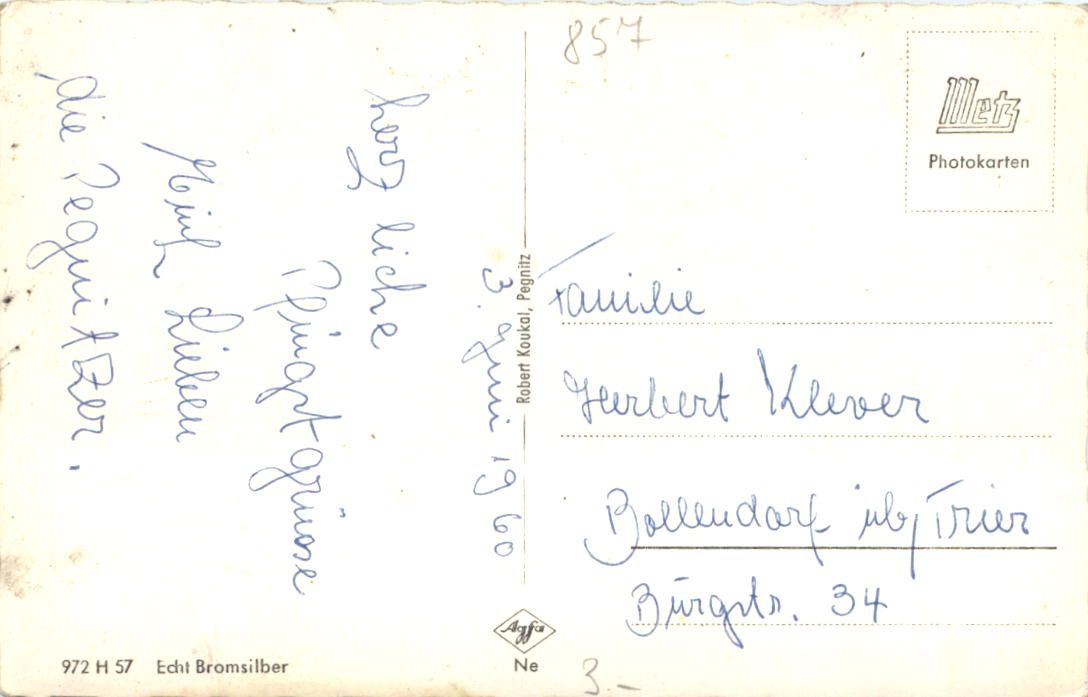 3. Juni 1960
herzliche
Pfingstgrüsse
Euch Lieben
die Pegnitzer.
857
Metz
Photokarten
Familie
Herbert Klever
Bollendorf üb/Trier
Burgstr. 34
Robert Koukal, Pegnitz
Agfa
972 H 57 Echt Bromsilber
Ne
3.–